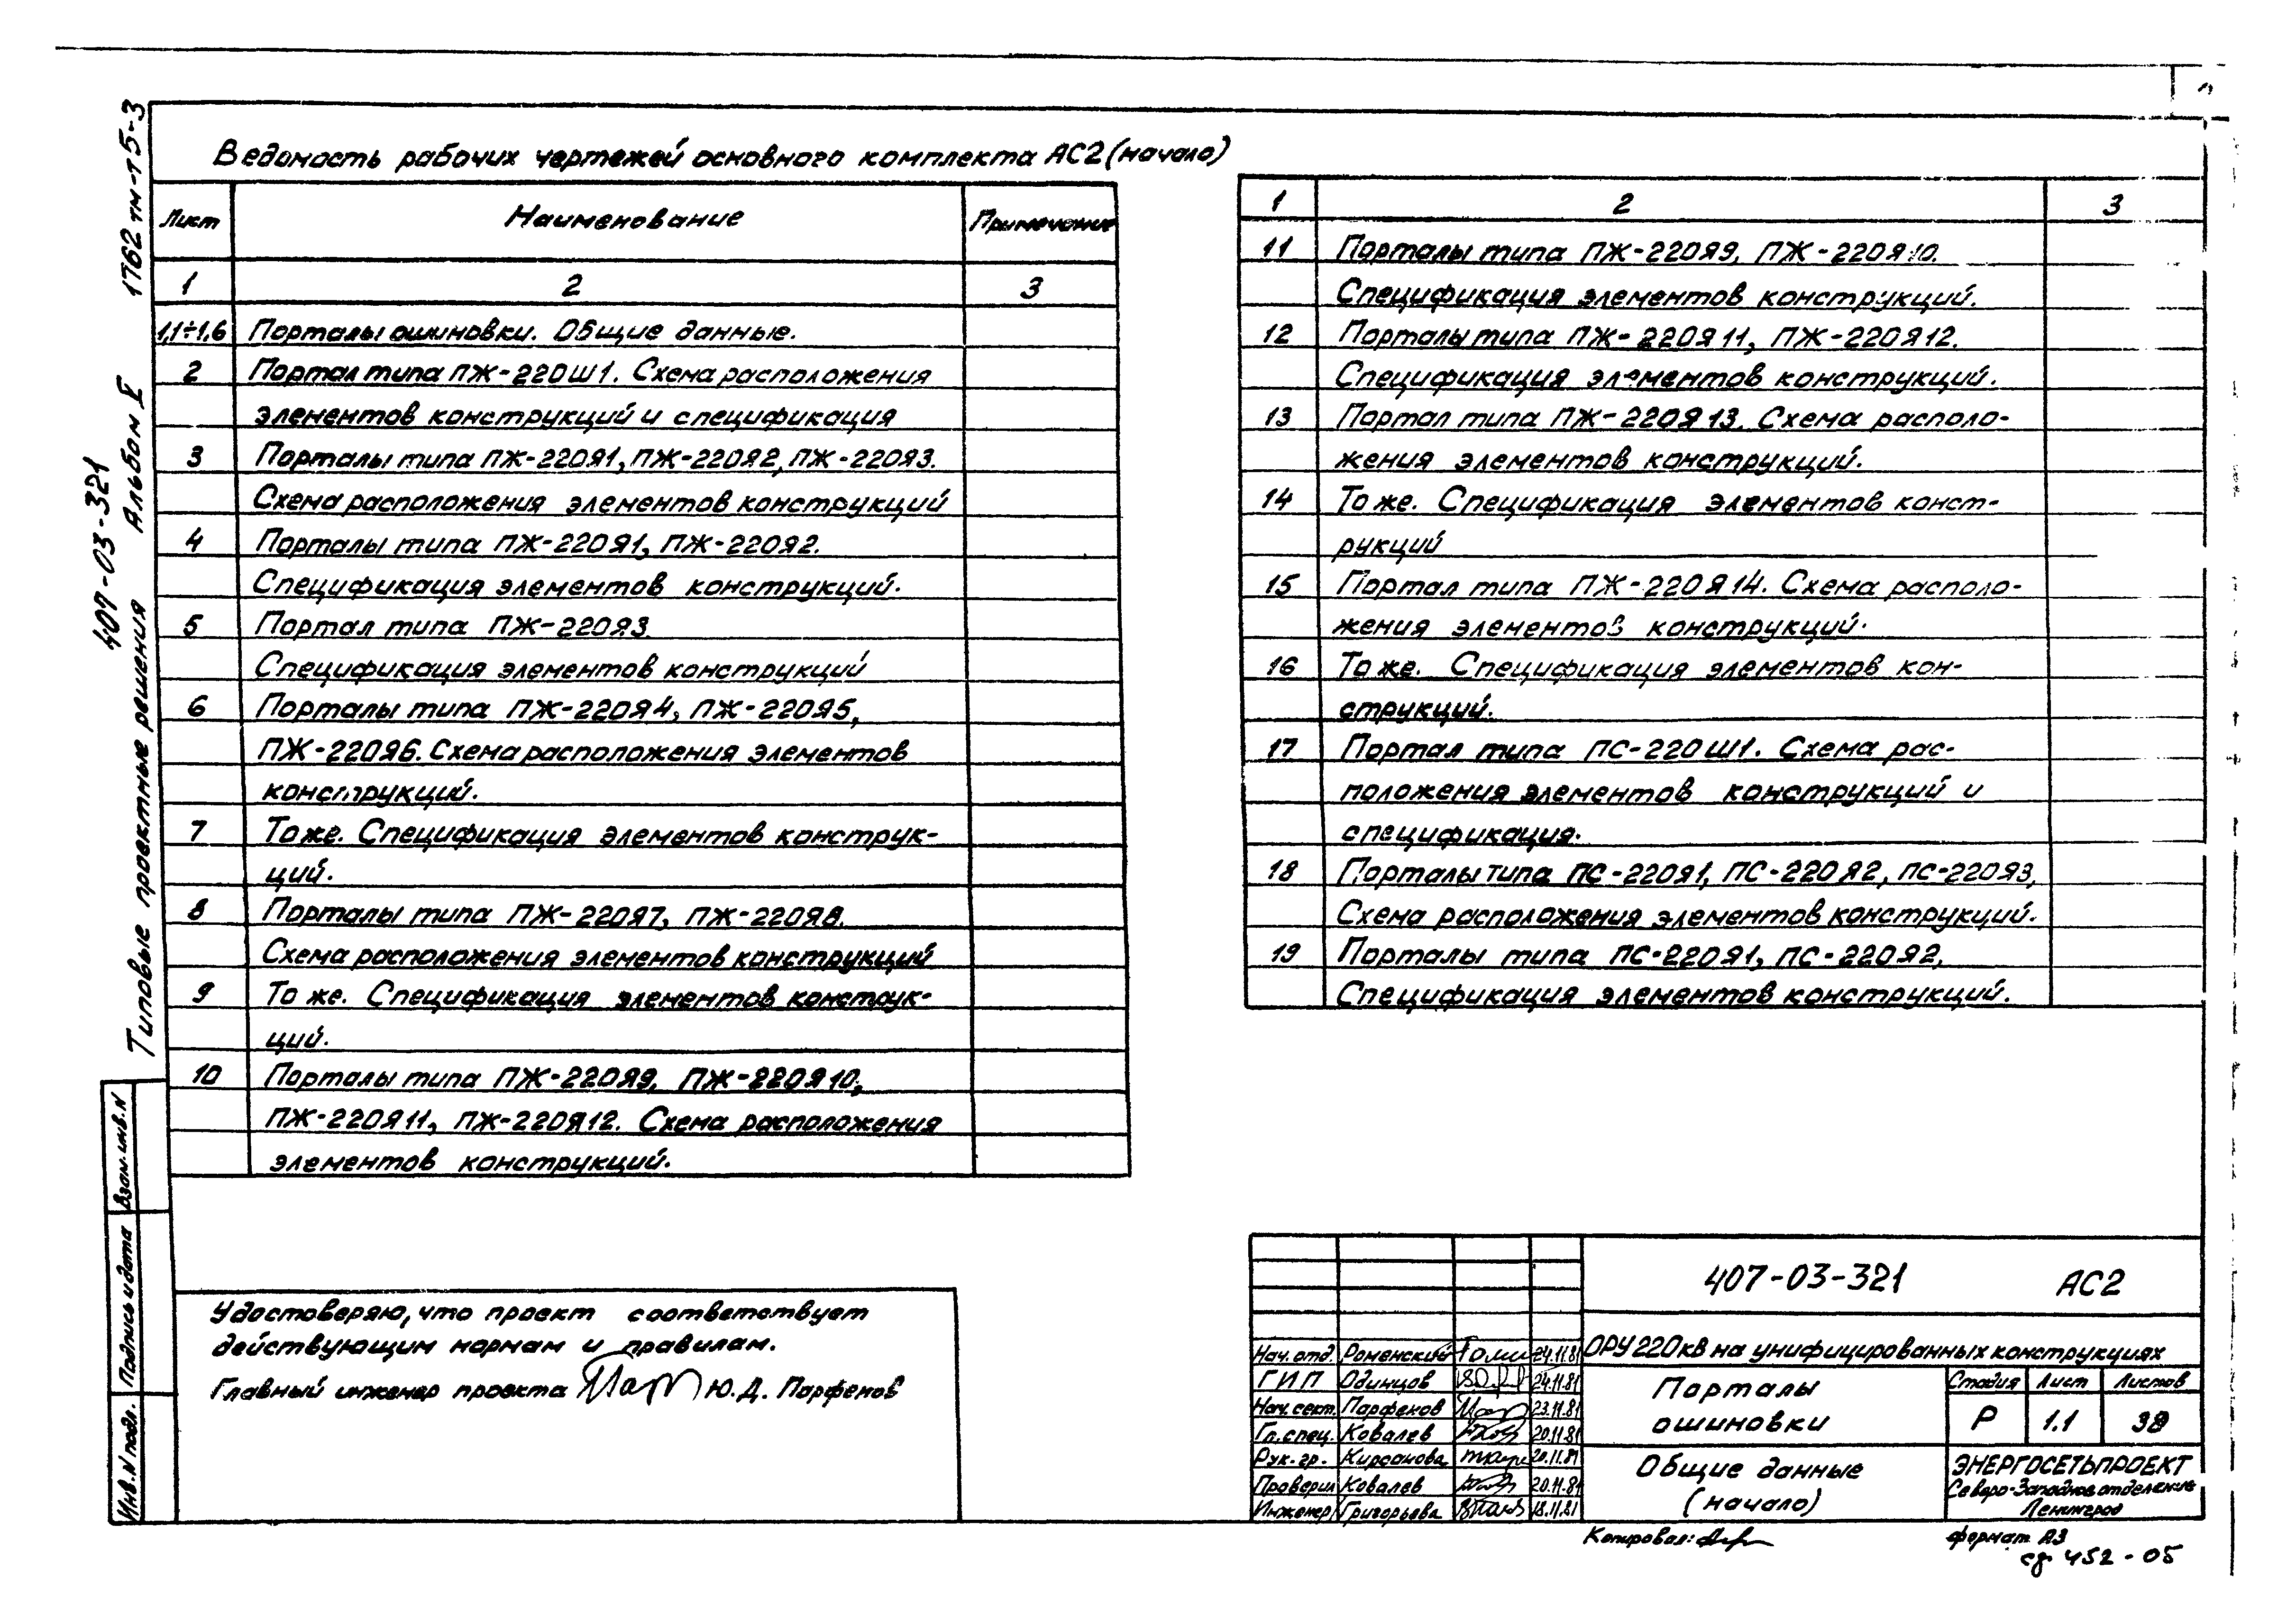 Ведомость рабочих чертежей основного комплекта АС2 (начало)
Лист Наименование Примечание
1 2 3
1,1÷1,6 Порталы ошиновки. Общие данные.
2 Портал типа ПЖ-220Ш1. Схема расположения
элементов конструкций и спецификация
3 Порталы типа ПЖ-220Я1, ПЖ-220Я2, ПЖ-220Я3.
Схема расположения элементов конструкций
4 Порталы типа ПЖ-220Я1, ПЖ-220Я2.
Спецификация элементов конструкций.
5 Портал типа ПЖ-220Я3.
Спецификация элементов конструкций
6 Порталы типа ПЖ-220Я4, ПЖ-220Я5,
ПЖ-220Я6. Схема расположения элементов
конструкций.
7 То же. Спецификация элементов конструк-
ций.
8 Порталы типа ПЖ-220Я7, ПЖ-220Я8.
Схема расположения элементов конструкций
9 То же. Спецификация элементов конструк-
ций.
10 Порталы типа ПЖ-220Я9, ПЖ-220Я10,
ПЖ-220Я11, ПЖ-220Я12. Схема расположения
элементов конструкций.
1 2 3
11 Порталы типа ПЖ-220Я9, ПЖ-220Я10.
Спецификация элементов конструкций.
12 Порталы типа ПЖ-220Я11, ПЖ-220Я12.
Спецификация элементов конструкций.
13 Портал типа ПЖ-220Я13. Схема располо-
жения элементов конструкций.
14 То же. Спецификация элементов конст-
рукций
15 Портал типа ПЖ-220Я14. Схема располо-
жения элементов конструкций.
16 То же. Спецификация элементов кон-
струкций.
17 Портал типа ПС-220Ш1. Схема рас-
положения элементов конструкций и
спецификация.
18 Порталы типа ПС-220Я1, ПС-220Я2, ПС-220Я3,
Схема расположения элементов конструкций.
19 Порталы типа ПС-220Я1, ПС-220Я2,
Спецификация элементов конструкций.
Удостоверяю, что проект соответствует
действующим нормам и правилам.
Главный инженер проекта Ю.Д. Парфенов
407-03-321 АС2
ОРУ 220 кВ на унифицированных конструкциях
Нач. отд. Роменский 24.11.81
ГИП Одинцов 24.11.81
Нач. сект. Парфенов 23.11.81
Гл. спец. Ковалев 20.11.81
Рук. гр. Кирсанова 20.11.81
Проверил Ковалев 20.11.81
Инженер Григорьева 18.11.81
Порталы
ошиновки
Стадия Лист Листов
Р 1.1
Общие данные
(начало)
ЭНЕРГОСЕТЬПРОЕКТ
Северо-Западное отделение
Ленинград
Копировал:
формат А3
сф 452-05
407-03-321
Типовые проектные решения Альбом V 1762 тм-т5-3
Взам. инв. N
Подпись и дата
Инв. N подл.